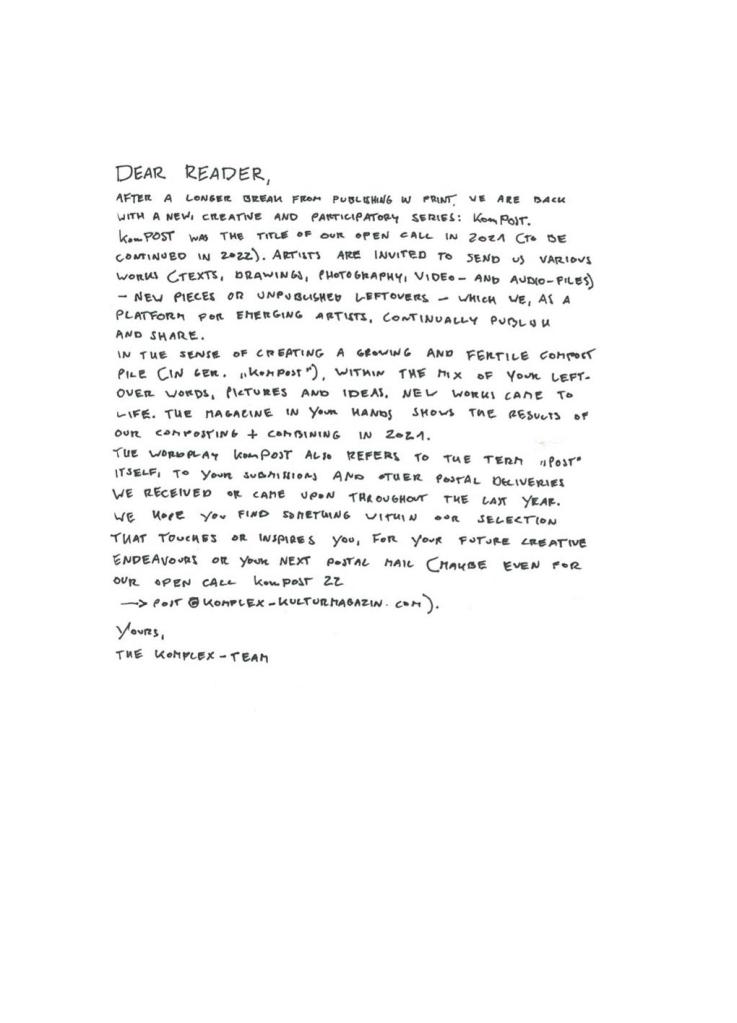 DEAR READER,
AFTER A LONGER BREAK FROM PUBLISHING IN PRINT, WE ARE BACK
WITH A NEW, CREATIVE AND PARTICIPATORY SERIES: KomPOST.
KomPOST WAS THE TITLE OF OUR OPEN CALL IN 2021 (TO BE
CONTINUED IN 2022). ARTISTS ARE INVITED TO SEND US VARIOUS
WORKS (TEXTS, DRAWINGS, PHOTOGRAPHY, VIDEO- AND AUDIO-FILES)
– NEW PIECES OR UNPUBLISHED LEFTOVERS – WHICH WE, AS A
PLATFORM FOR EMERGING ARTISTS, CONTINUALLY PUBLISH
AND SHARE.
IN THE SENSE OF CREATING A GROWING AND FERTILE COMPOST
PILE (IN GER. „KOMPOST"), WITHIN THE MIX OF YOUR LEFT-
OVER WORDS, PICTURES AND IDEAS, NEW WORKS CAME TO
LIFE. THE MAGAZINE IN YOUR HANDS SHOWS THE RESULTS OF
OUR COMPOSTING + COMBINING IN 2021.
THE WORDPLAY KomPOST ALSO REFERS TO THE TERM „POST"
ITSELF, TO YOUR SUBMISSIONS AND OTHER POSTAL DELIVERIES
WE RECEIVED OR CAME UPON THROUGHOUT THE LAST YEAR.
WE HOPE YOU FIND SOMETHING WITHIN OUR SELECTION
THAT TOUCHES OR INSPIRES YOU, FOR YOUR FUTURE CREATIVE
ENDEAVOURS OR YOUR NEXT POSTAL MAIL (MAYBE EVEN FOR
OUR OPEN CALL KomPOST 22
—> POST@KOMPLEX-KULTURMAGAZIN.COM).
YOURS,
THE KOMPLEX-TEAM